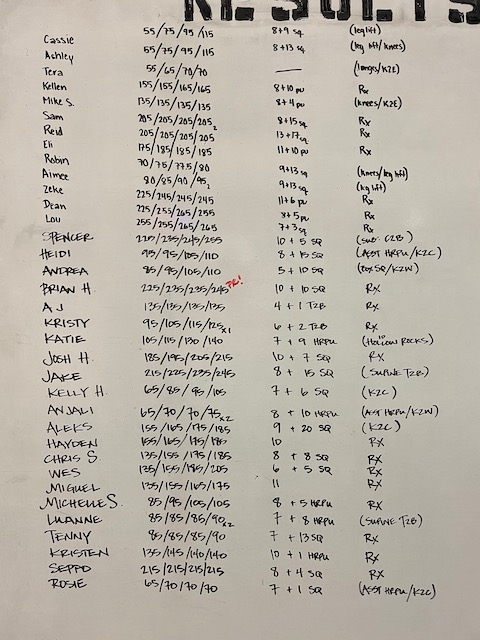 RESULTS
Cassie 55/75/95/115 8+9 sq (leg lift)
Ashley 55/75/95/115 8+13 sq (leg lift/knees)
Tera 55/65/70/70 — (lunges/K2E)
Kellen 155/155/165/165 8+10 pu Rx
Mike S. 135/135/135/135 8+4 pu (knees/K2E)
Sam 205/205/205/205 8+15 sq Rx
Reid 205/205/205/205 2 13+17 sq Rx
Eli 175/185/185/185 11+10 pu Rx
Robin 70/75/77.5/80
Aimee 80/85/90/95 2 9+13 sq (knees/leg lift)
Zeke 225/245/245/245 9+13 sq (leg lift)
Dean 225/255/265/255 11+6 pu Rx
Lou 255/255/265/265 8+5 pu Rx
7+3 sq Rx
SPENCER 225/235/245/255 10 + 5 SQ (SUB: C2B)
HEIDI 95/95/105/110 8 + 15 SQ (ASST HRPU/K2C)
ANDREA 85/95/105/110 5 + 10 SQ (SQ/K2W)
BRIAN H. 225/235/235/245 PR! 10 + 10 SQ RX
AJ 135/135/135/135 4 + 1 T2B RX
KRISTY 95/105/115/125 x1 6 + 2 T2B RX
KATIE 105/115/130/140 7 + 9 HRPU (HOLLOW ROCKS)
JOSH H. 185/195/205/215 10 + 7 SQ RX
JAKE 215/225/235/245 8 + 15 SQ (SUPINE T2B)
KELLY H 65/85/95/105 7 + 6 SQ (K2C)
ANJALI 65/70/70/75 x2 8 + 10 HRPU (ASST HRPU/K2W)
ALEKS 155/165/175/185 9 + 20 SQ (K2C)
HAYDEN 155/165/175/185 10 RX
CHRIS S. 135/155/175/185 8 + 8 SQ RX
WES 135/155/185/205 6 + 5 SQ RX
MIGUEL 135/155/165/175 11 RX
MICHELLE S. 85/95/105/105 8 + 5 HRPU RX
LUANNE 85/85/85/90 x2 7 + 8 HRPU (SUPINE T2B)
TENNY 85/85/85/90 7 + 13 SQ RX
KRISTEN 135/145/140/140 10 + 1 HRPU RX
SEPPO 215/215/215/215 8 + 4 SQ RX
ROSIE 65/70/70/70 7 + 1 SQ (ASST HRPU/K2C)